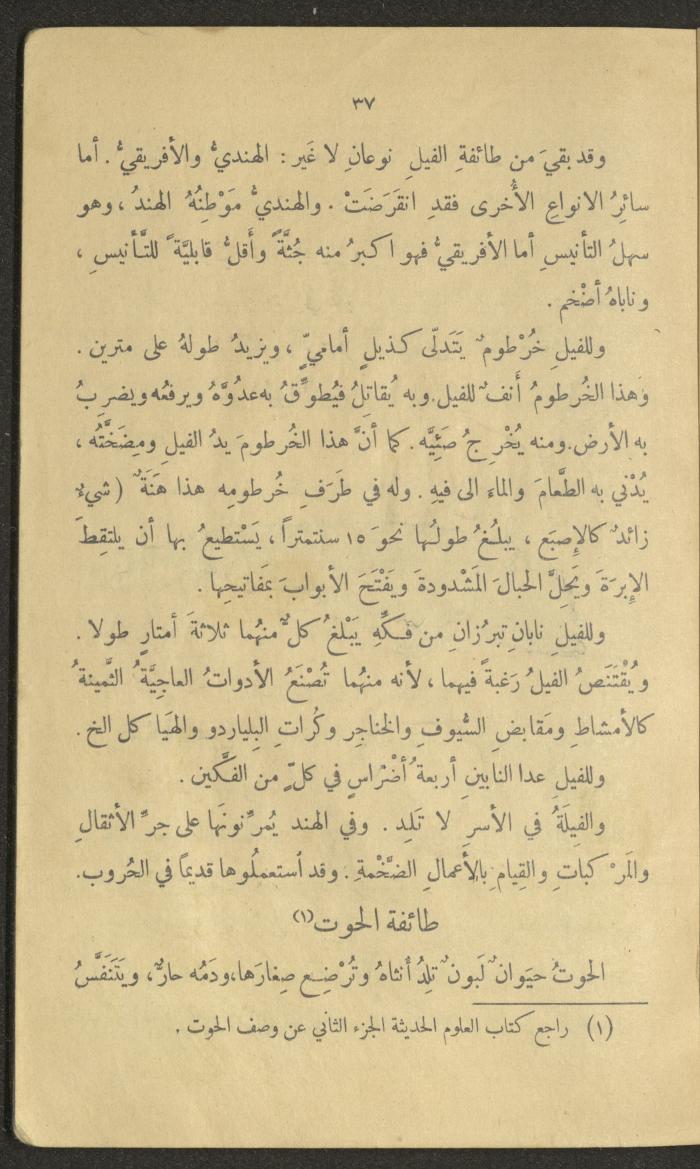 ٣٧
وقد بقيَ من طائفةِ الفيلِ نوعانِ لا غَير : الهنديُّ والأفريقيُّ . أما
سائِرُ الانواعِ الأُخرى فقدِ انقرَضَتْ . والهنديُّ مَوْطِنُهُ الهندُ ، وهو
سهلُ التأنيسِ أما الأفريقيُّ فهو اكبرُ منه جُثَّةً وأَقلُّ قابليَّةً للتَّأنيسِ ،
وناباهُ أضْخم .
وللفيلِ خُرْطومٌ يَتَدلّى كذيلٍ أماميٍّ ، ويزيدُ طولهُ على مترين .
وَهذا الخُرطومُ أَنفٌ للفيل.وبه يُقاتِلُ فيُطوِّقُ به عدُوَّهُ ويرفعُه ويضرِبُ
به الأرض.ومنه يُخْرِجُ صَئِيَّه . كما أنَّ هذا الخُرطومَ يدُ الفيلِ ومِضَخَّتُه ،
يُدْني به الطَّعامَ والماءَ الى فيهِ . وله في طَرَفِ خُرطومِه هذا هَنَةٌ ( شيءٌ
زائدٌ كالإصبَعِ ، يبلُغُ طولُها نحوَ ١٥ سنتمتراً ، يَسْتطيعُ بها أن يلتقِطَ
الإِبرَةَ ويَحِلَّ الحبالَ المَشْدودةَ ويَفْتَحَ الأبوابَ بمَفاتيحِها .
وللفيلِ نابانِ تبرُزانِ من فكِّهِ يَبْلغُ كلٌّ منهُما ثلاثةَ أمتارٍ طولا .
ويُقْتَنَصُ الفيلُ رَغبةً فيهما ، لأنه منهُما تُصْنَعُ الأدواتُ العاجيَّةُ الثَّمينةُ
كالأمشاطِ ومَقابضِ السُّيوفِ والخناجِرِ وكُراتِ البِلياردو والهَيا كل الخ .
وللفيلِ عدا النابينِ أربعةُ أضْراسٍ في كلٍّ من الفكَّين .
والفِيلَةُ في الأسرِ لا تَلِد . وفي الهند يُمرِّنونَها على جرِّ الأثقالِ
والمَرْ كباتِ والقِيامِ بالأعمالِ الضَّخْمةِ . وقد اُستعملُوها قديماً في الحُروب.
طائفة الحوت(١)
الحوتُ حيَوانٌ لَبونٌ تلِدُ أُنثاهُ وتُرْضِع صِغارَها،ودَمُه حارٌّ، ويَتَنَفَّسُ
(١) راجع كتاب العلوم الحديثة الجزء الثاني عن وصف الحوت .